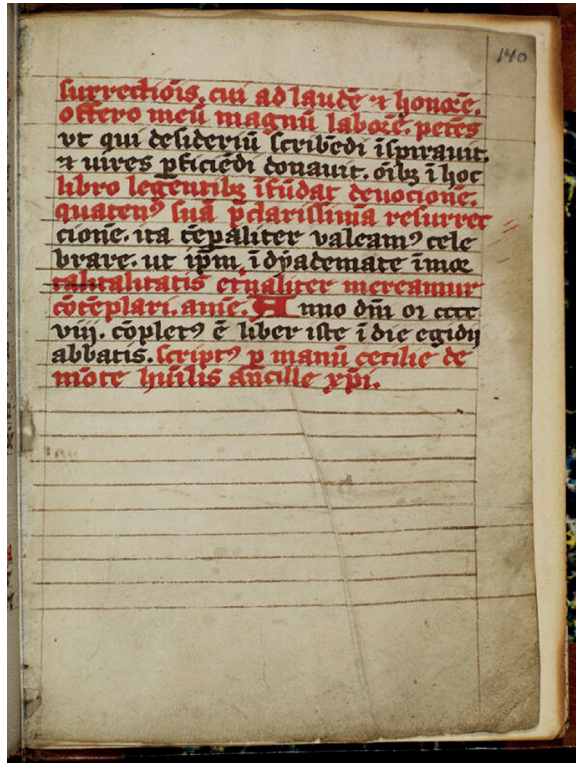 140
surrectiōis. cui ad laudē ⁊ honorē.
offero meū magnū laborē. petēs
vt qui desideriū scribēdi īspirauit.
⁊ uires ꝑficiēdi donauit. oībꝫ ī hoc
libro legentibꝫ īfūdat deuocionē.
quatenꝰ suā p̄clarissimā resurrec
cionē. ita tēꝑaliter valeamꝰ cele
brare. ut ip̄m. ī dyademate īmor
talitalitatis et̓naliter mereamur
cōtēplari. amē. Anno dn̄i m cccc
viij. cōpletꝰ ē liber iste ī die egidij
abbatis. scriptꝰ ꝑ manū cecilie de
mōte hūilis ācille xp̄i.